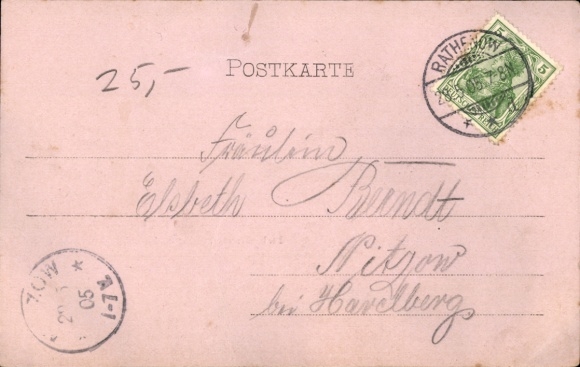 25,-
POSTKARTE
RATHENOW
5 5
Fräulein
Elsbeth Berndt
Nitzow
bei Havelberg
ZOW
05